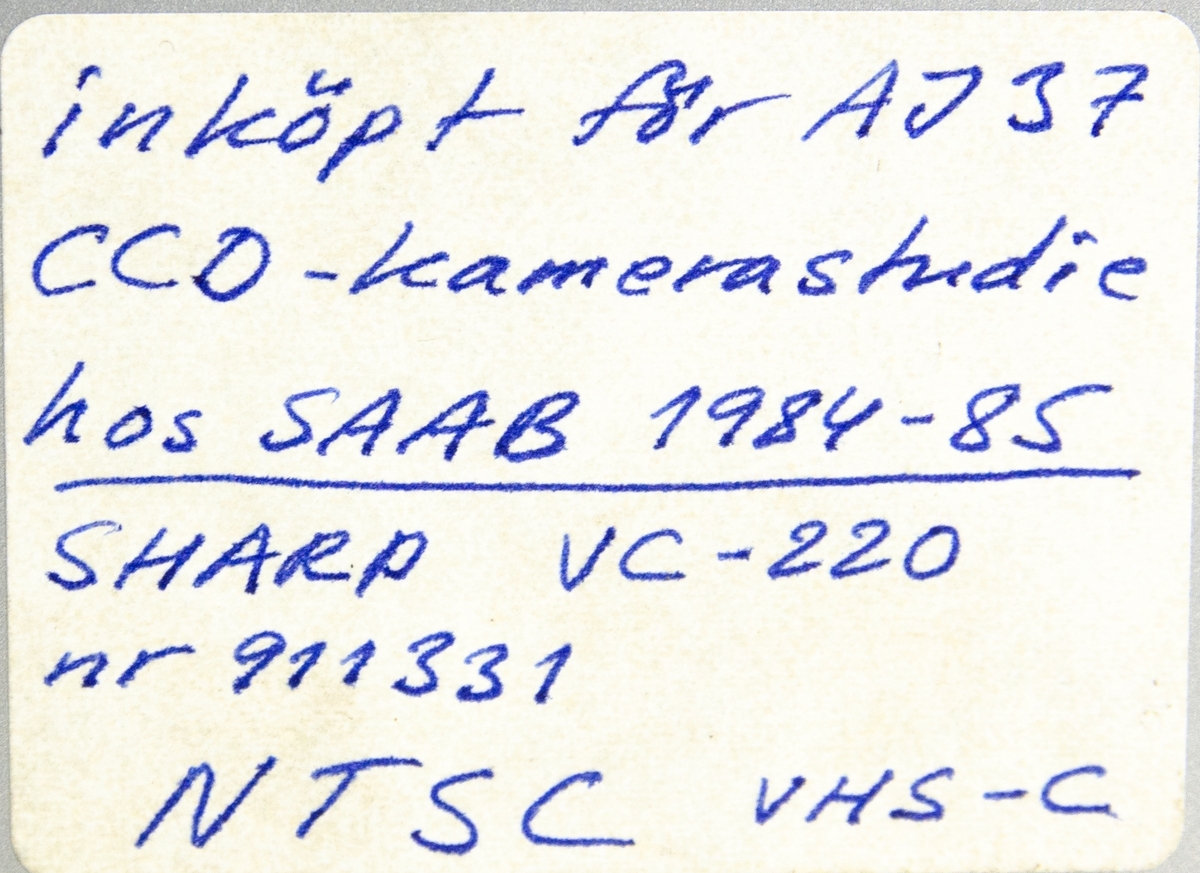 inköpt för AJ37
CCD-kamerastudie
hos SAAB 1984-85
SHARP VC-220
nr 911331
NTSC VHS-C